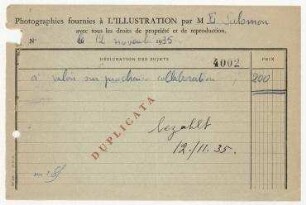 Photographies fournies à L'ILLUSTRATION par M E. Salomon
avec tous les droits de propriété et de reproduction.
N° le 12 novembre 1935
DÉSIGNATION DES SUJETS 4002
à valoir sur prochaine collaboration 200
DUPLICATA
bezahlt
12./11.35.